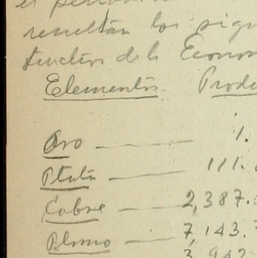 el period
resultan los sigu
tución de la Econom
Elementos Produ
Oro — 1.
Plata — 111.
Cobre — 2,387.
Plomo — 7,143.
3,942